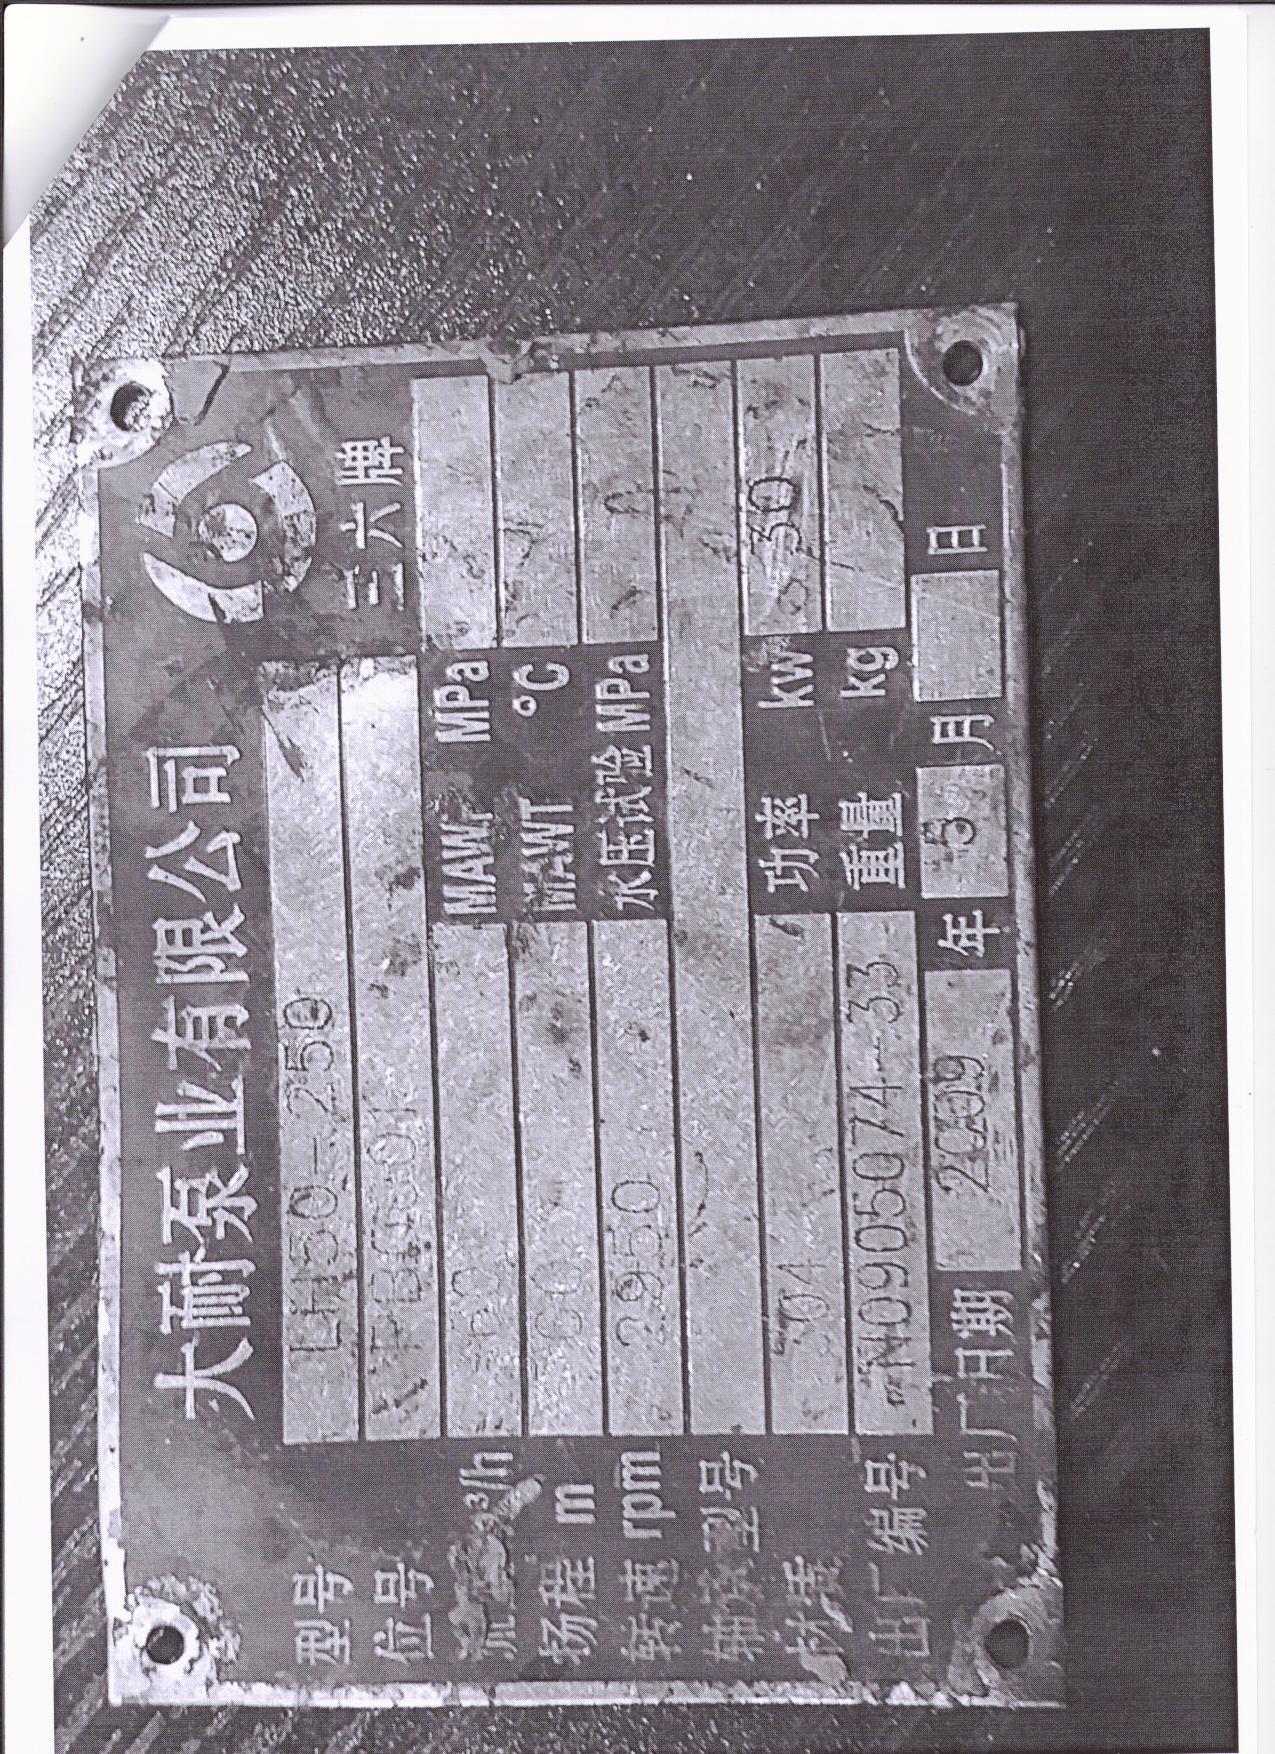 大耐泵业有限公司
三六牌
型号 LH50-250
位号
流量 m³/h MAWP MPa
扬程 m MAWT °C
转速 rpm 2950 水压试验 MPa
轴承型号
材质 304 功率 kw 30
出厂编号 N0905074-33 重量 kg
出厂日期 2009 年 5 月 日